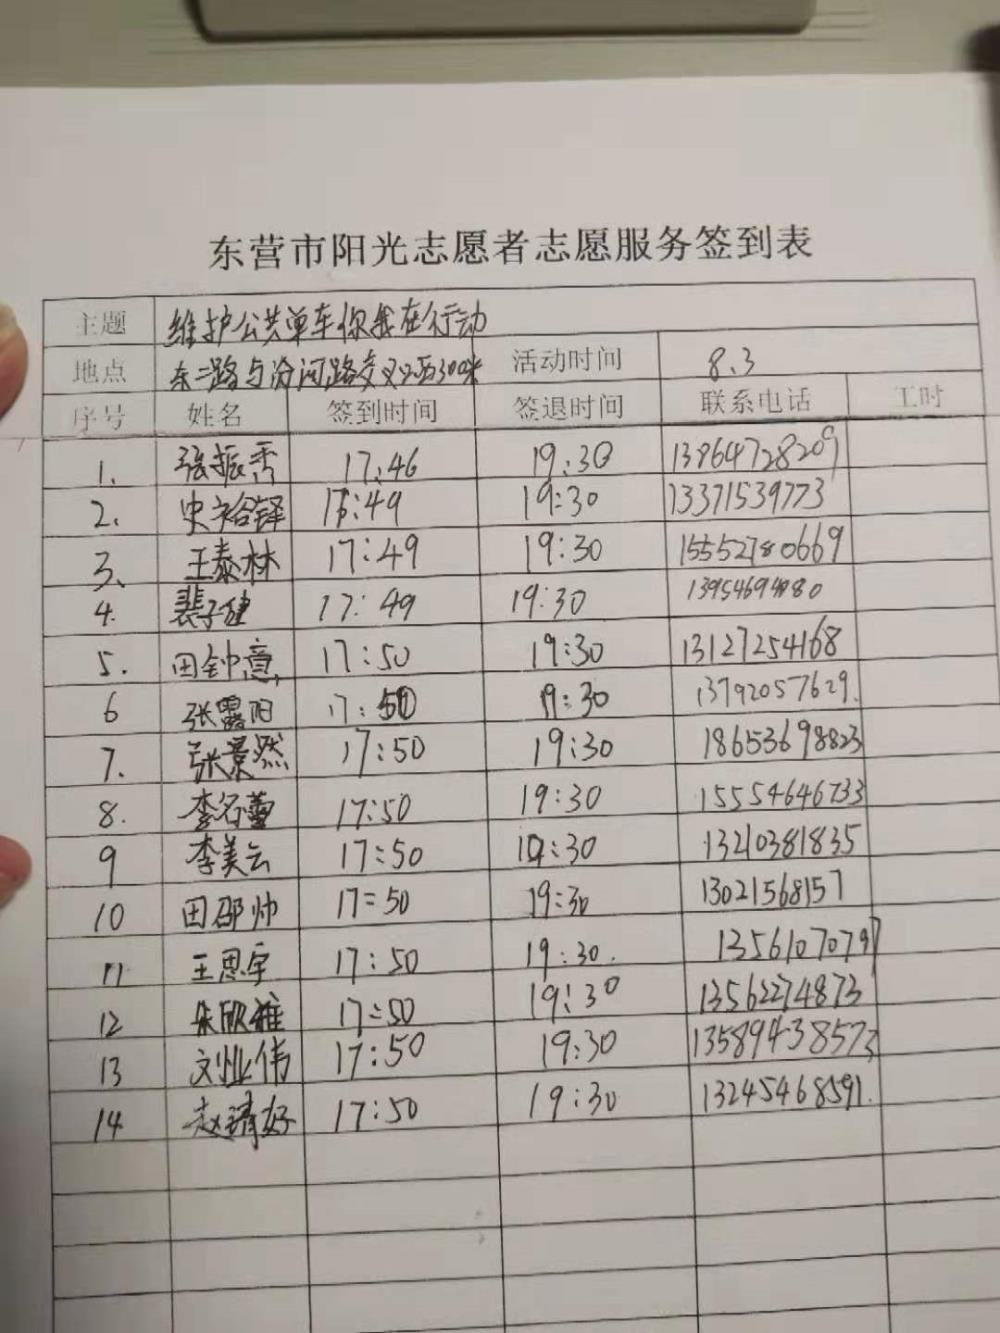 东营市阳光志愿者志愿服务签到表
主题 维护公共单车你我在行动
地点 东二路与汾河路交叉口西300米 活动时间 8.3
序号 姓名 签到时间 签退时间 联系电话 工时
1. 张振秀 17:46 19:30 13964728209
2. 史裕铎 17:49 19:30 13371539773
3、 王泰林 17:49 19:30 15552780669
4. 裴子健 17:49 19:30
5. 田钟意 17:50 19:30 13127254168
6 张露阳 17:50 19:30 13792057629.
7. 张景然 17:50 19:30 18653698823
8. 李名蕾 17:50 19:30 15554646733
9 李美云 17:50 19:30 13210381835
10 田邵帅 17:50 19:30 13021568157
11 王思宇 17:50 19:30. 13561070797
12 朱欣雅 17:50 19:30 13562274873
13 刘业伟 17:50 19:30 13589438573
14 赵靖好 17:50 19:30 13245468591.